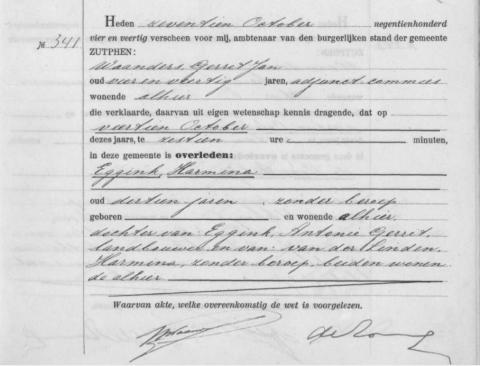 Heden zeventien October negentienhonderd
№ 341
vier en veertig verscheen voor mij, ambtenaar van den burgerlijken stand der gemeente
ZUTPHEN:
Waanders, Gerrit Jan
oud vier en veertig jaren, adjunct commies
wonende alhier
die verklaarde, daarvan uit eigen wetenschap kennis dragende, dat op
veertien October
dezes jaars, te zestien ure minuten,
in deze gemeente is overleden:
Eggink, Harmina
oud dertien jaren, zonder beroep
geboren en wonende alhier,
dochter van Eggink, Antonie Gerrit,
landbouwer en van: van der Linden,
Harmina, zonder beroep, beiden wonen
de alhier
Waarvan akte, welke overeenkomstig de wet is voorgelezen.